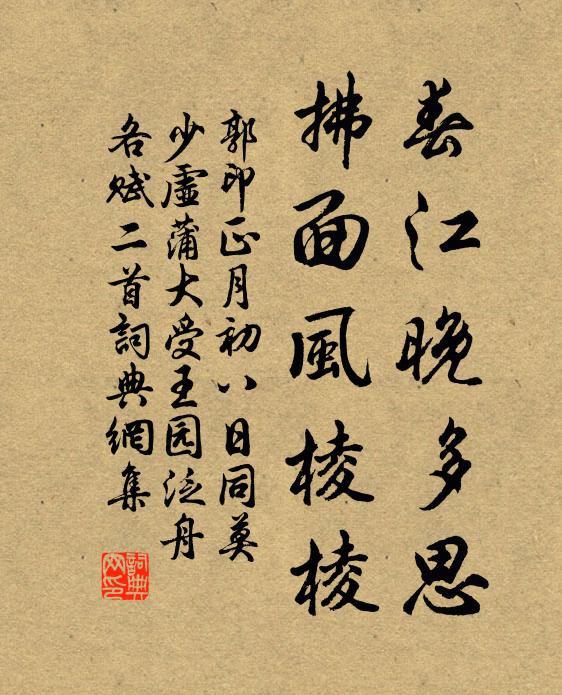 春江晚多思
拂面風棱棱
郭印正月初八日同莫
少虛蒲大受王园泛舟
各赋二首詞典網集
詞典网印